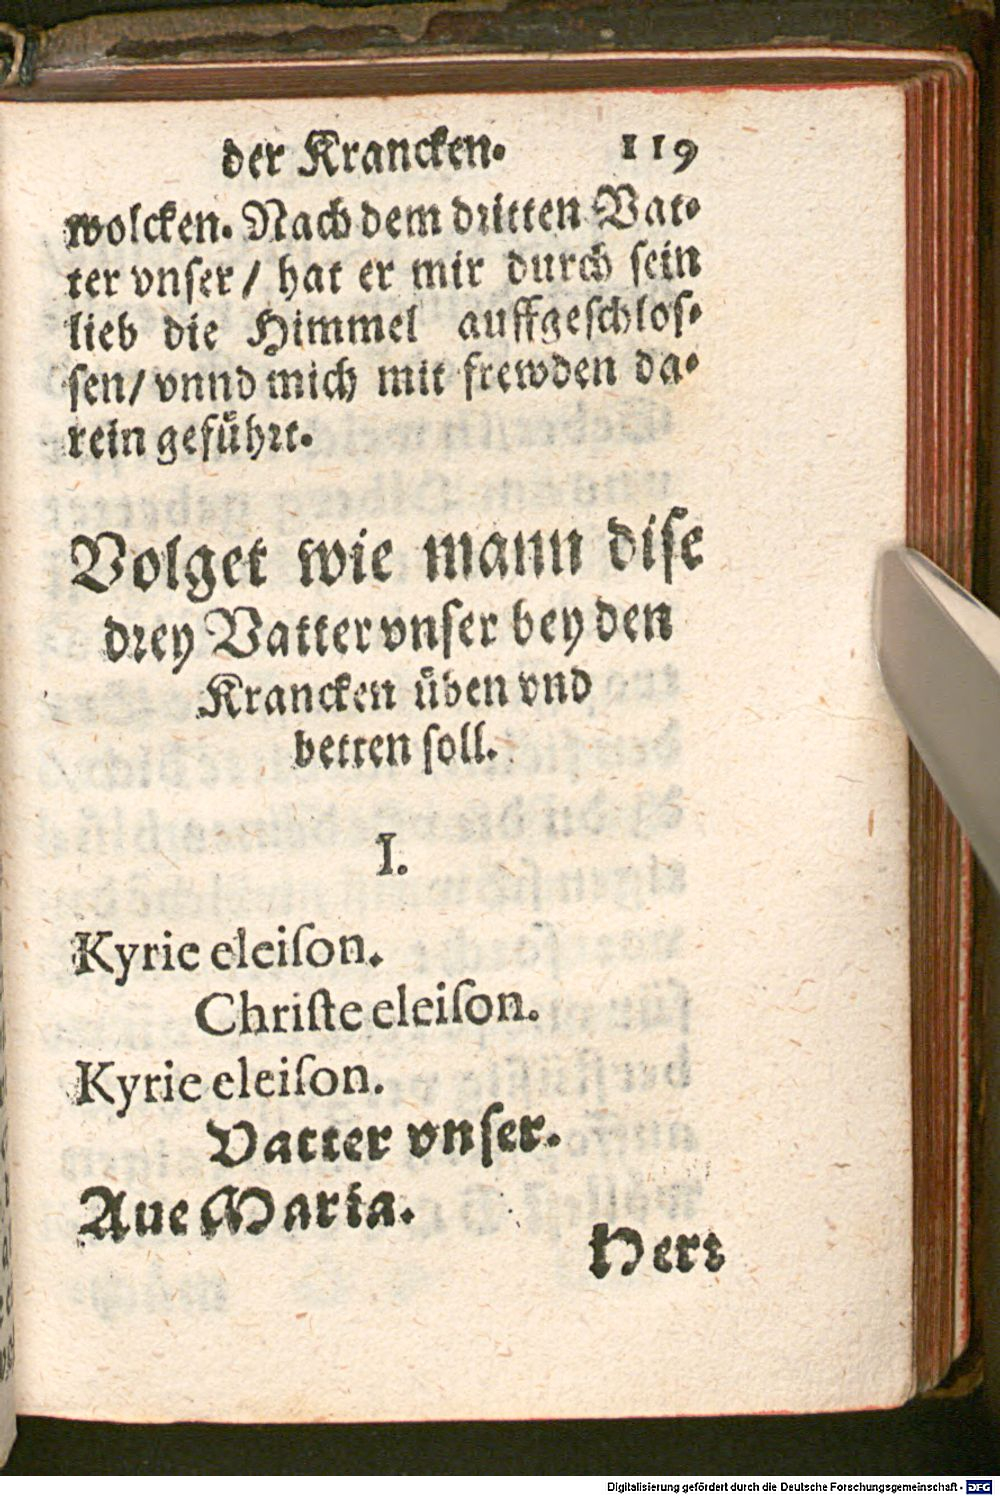 der Krancken. 119
wolcken. Nach dem dritten Vat-
ter vnser / hat er mir durch sein
lieb die Himmel auffgeschlos-
sen/ vnnd mich mit frewden da-
rein geführt.
Volget wie mann dise
drey Vatter vnser bey den
Krancken üben vnd
betten soll.
I.
Kyrie eleiſon.
Chriſte eleiſon.
Kyrie eleiſon.
Vatter vnser.
Aue Maria.
Herr
Digitalisierung gefördert durch die Deutsche Forschungsgemeinschaft - DFG